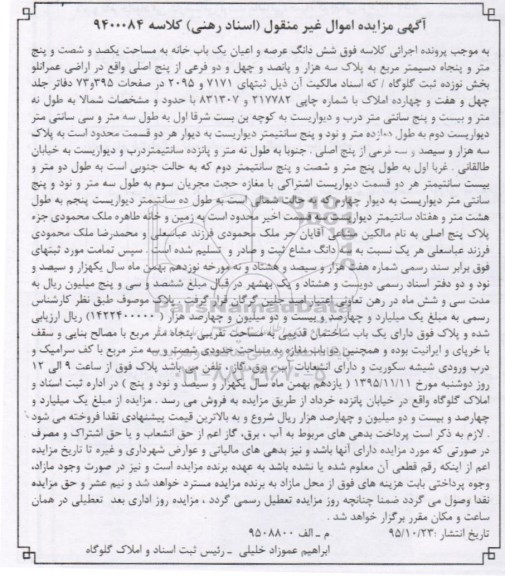 آگهی مزایده اموال غیر منقول (اسناد رهنی) کلاسه ۹۴۰۰۰۸۴
به موجب پرونده اجرائی کلاسه فوق شش دانگ عرصه و اعیان یک باب خانه به مساحت یکصد و شصت و پنج
متر و پنجاه دسیمتر مربع به پلاک سه هزار و پانصد و چهل و دو فرعی از پنج اصلی واقع در اراضی عمرانلو
بخش نوزده ثبت گلوگاه / که اسناد مالکیت آن ذیل ثبتهای ۷۱۷۱ و ۲۰۹۵ در صفحات ۳۹۵و۷۳ دفاتر جلد
چهل و هفت و چهارده املاک با شماره چاپی ۲۱۷۷۸۲ و ۸۳۱۳۰۷ با حدود و مشخصات شمالا به طول نه
متر و بیست و پنج سانتی متر درب و دیواریست به کوچه بن بست شرقا اول به طول سه متر و سی سانتی متر
دیواریست دوم به طول دوازده متر و نود و پنج سانتیمتر دیواریست به دیوار هر دو قسمت محدود است به پلاک
سه هزار و سیصد و سه فرعی از پنج اصلی، جنوبا به طول نه متر و پانزده سانتیمتردرب و دیواریست به خیابان
طالقانی . غربا اول به طول پنج متر و شصت و پنج سانتیمتر دوم که به حالت جنوبی است به طول دو متر و
بیست سانتیمتر هر دو قسمت دیواریست اشتراکی با مغازه حجت مجریان سوم به طول سه متر و نود و پنج
سانتی متر دیواریست به دیوار چهارم که به حالت شمالی است به طول ده سانتیمتر دیواریست پنجم به طول
هشت متر و هفتاد سانتیمتر دیواریست سه قسمت اخیر محدود است به زمین و خانه طاهره ملک محمودی جزء
پلاک پنج اصلی به نام مالکین مشاعی آقایان حر ملک محمودی فرزند عباسعلی و محمدرضا ملک محمودی
فرزند عباسعلی هر یک نسبت به سه دانگ مشاع ثبت و صادر و تسلیم شده است . سپس تمامت مورد ثبتهای
فوق برابر سند رسمی شماره هفت هزار و سیصد و هشتاد و نه مورخه نوزدهم بهمن ماه سال یکهزار و سیصد و
نود و دو دفتر اسناد رسمی دویست و هشتاد و یک بهشهر در قبال مبلغ ششصد و سی و پنج میلیون ریال به
مدت سی و شش ماه در رهن تعاونی اعتبار امید جلین گرگان قرار گرفت . پلاک موصوف طبق نظر کارشناس
رسمی به مبلغ یک میلیارد و چهارصد و بیست و دو میلیون و چهارصد هزار (۱۴۲۲۴۰۰۰۰۰) ریال ارزیابی
شده و پلاک فوق دارای یک باب ساختمان قدیمی به مساحت تقریبی پنجاه متر مربع با مصالح بنایی و سقف
با خرپای و ایرانیت بوده و همچنین دو باب مغازه به مساحت حدودی شصت و سه متر مربع با کف سرامیک و
درب ورودی شیشه سکوریت و دارای انشعابات آب، برق، گاز، تلفن می باشد پلاک فوق از ساعت ۹ الی ۱۲
روز دوشنبه مورخ ۱۳۹۵/۱۱/۱۱ ( یازدهم بهمن ماه سال یکهزار و سیصد و نود و پنج ) در اداره ثبت اسناد و
املاک گلوگاه واقع در خیابان پانزده خرداد از طریق مزایده به فروش می رسد . مزایده از مبلغ یک میلیارد و
چهارصد و بیست و دو میلیون و چهارصد هزار ریال شروع و به بالاترین قیمت پیشنهادی نقدا فروخته می شود
. لازم به ذکر است پرداخت بدهی های مربوط به آب ، برق، گاز اعم از حق انشعاب و یا حق اشتراک و مصرف
در صورتی که مورد مزایده دارای آنها باشد و نیز بدهی های مالیاتی و عوارض شهرداری و غیره تا تاریخ مزایده
اعم از اینکه رقم قطعی آن معلوم شده یا نشده باشد به عهده برنده مزایده است و نیز در صورت وجود مازاد،
وجوه پرداختی بابت هزینه های فوق از محل مازاد به برنده مزایده مسترد خواهد شد و نیم عشر و حق مزایده
نقدا وصول می گردد ضمنا چنانچه روز مزایده تعطیل رسمی گردد ، مزایده روز اداری بعد تعطیلی در همان
ساعت و مکان مقرر برگزار خواهد شد .
تاریخ انتشار: ۹۵/۱۰/۲۳ م ـ الف ۹۵۰۸۸۰۰
ابراهیم عموزاد خلیلی ـ رئیس ثبت اسناد و املاک گلوگاه